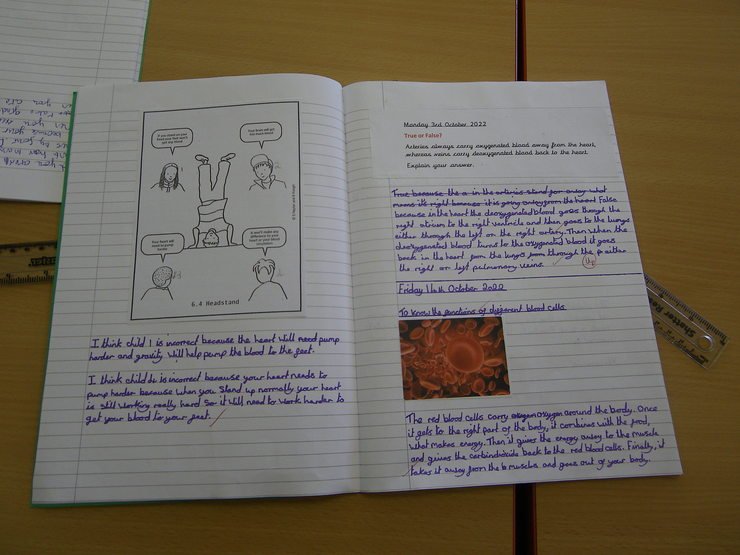 If you stand on your head your feet won't get any blood
Your brain will get too much blood
Your heart will need to pump harder
It won't make any difference to your heart or your blood circulation
6.4 Headstand
I think child 1 is incorrect because the heart will need pump
harder and gravity will help pump the blood to the feet.
I think child 2 is incorrect because your heart needs to
pump harder because when you stand up normally your heart
is still working really hard so it will need to work harder to
get your blood to your feet.
Monday 3rd October 2022
True or False?
Arteries always carry oxygenated blood away from the heart,
whereas veins carry deoxygenated blood back to the heart.
Explain your answer.
True because the a in the arteries stand for away what
means it's right because it is going away from the heart False
because in the heart the deoxygenated blood goes through the
right atrium to the right ventricle and then goes to the lungs
either through the left or the right artery. Then when the
deoxygenated blood turns to the oxygenated blood it goes
back in the heart from the lungs from through the either
the right or left pulmonary veins.
Friday 14th October 2022
To know the functions of different blood cells
The red blood cells carry oxygen around the body. Once
it gets to the right part of the body, it combines with the food,
what makes energy. Then it gives the energy away to the muscle
and gives the carbindioxide back to the red blood cells. Finally, it
takes it away from the muscles and gone out of your body.